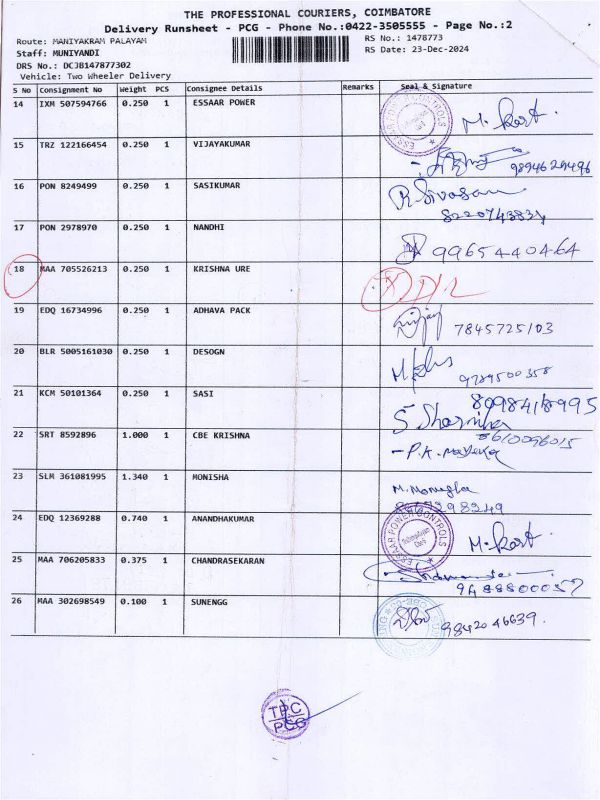 THE PROFESSIONAL COURIERS, COIMBATORE
Delivery Runsheet - PCG - Phone No.:0422-3505555 - Page No.:2
Route: MANIYAKRAM PALAYAM
RS No.: 1478773
Staff: MUNIYANDI
RS Date: 23-Dec-2024
DRS No.: DCJB147877302
Vehicle: Two Wheeler Delivery
S No Consignment No Weight PCS Consignee Details Remarks Seal & Signature
14 IXM 507594766 0.250 1 ESSAAR POWER
15 TRZ 122166454 0.250 1 VIJAYAKUMAR 9894629496
16 PON 8249499 0.250 1 SASIKUMAR R Sivasan
17 PON 2978970 0.250 1 NANDHI 9965440464
18 MAA 705526213 0.250 1 KRISHNA URE
19 EDQ 16734996 0.250 1 ADHAVA PACK 7845725103
20 BLR 5005161030 0.250 1 DESOGN 9789500358
21 KCM 50101364 0.250 1 SASI
22 SRT 8592896 1.000 1 CBE KRISHNA
23 SLM 361081995 1.340 1 MONISHA
24 EDQ 12369288 0.740 1 ANANDHAKUMAR
25 MAA 706205833 0.375 1 CHANDRASEKARAN 9488800057
26 MAA 302698549 0.100 1 SUNENGG 9842046639.
TPC
PCG